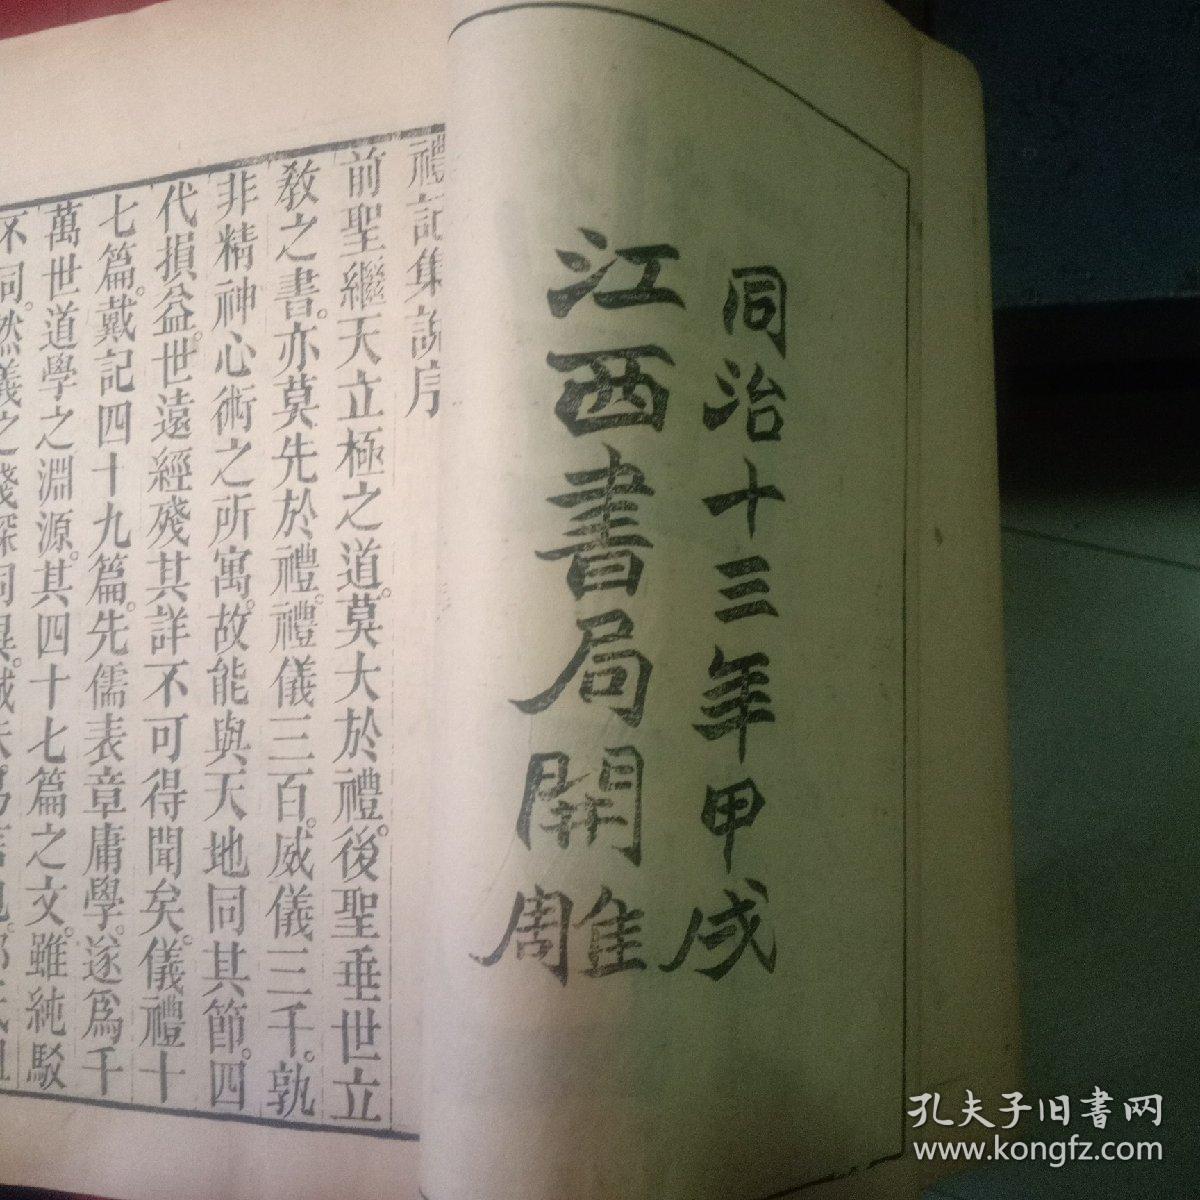 同治十三年甲戌
江西書局開雕
禮記集說序
前聖繼天立極之道。莫大於禮。後聖垂世立
教之書。亦莫先於禮。禮儀三百。威儀三千。孰
非精神心術之所寓。故能與天地同其節。四
代損益。世遠經殘。其詳不可得聞矣。儀禮十
七篇。戴記四十九篇。先儒表章庸學。遂爲千
萬世道學之淵源。其四十七篇之文。雖純駁
不同。然義之淺深同異。誠未易言也。鄭氏祖
孔夫子旧書网
www.kongfz.com